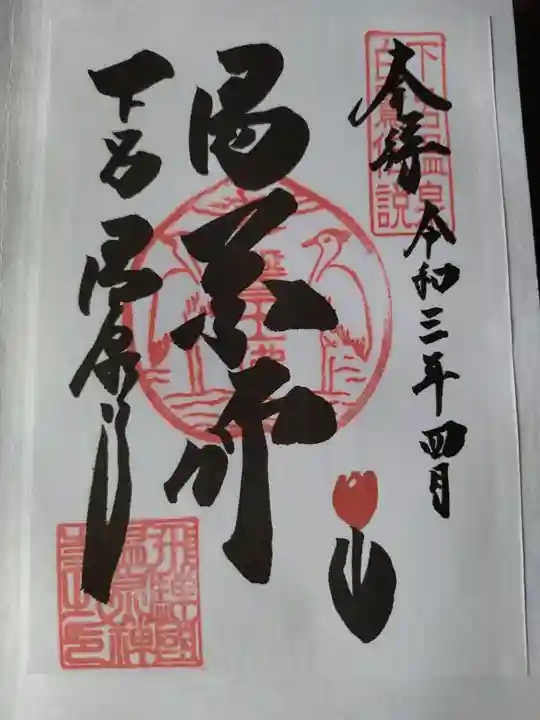 下呂温泉
白鷺伝説
奉拝
令和三年四月
湯薬師
下呂 温泉寺